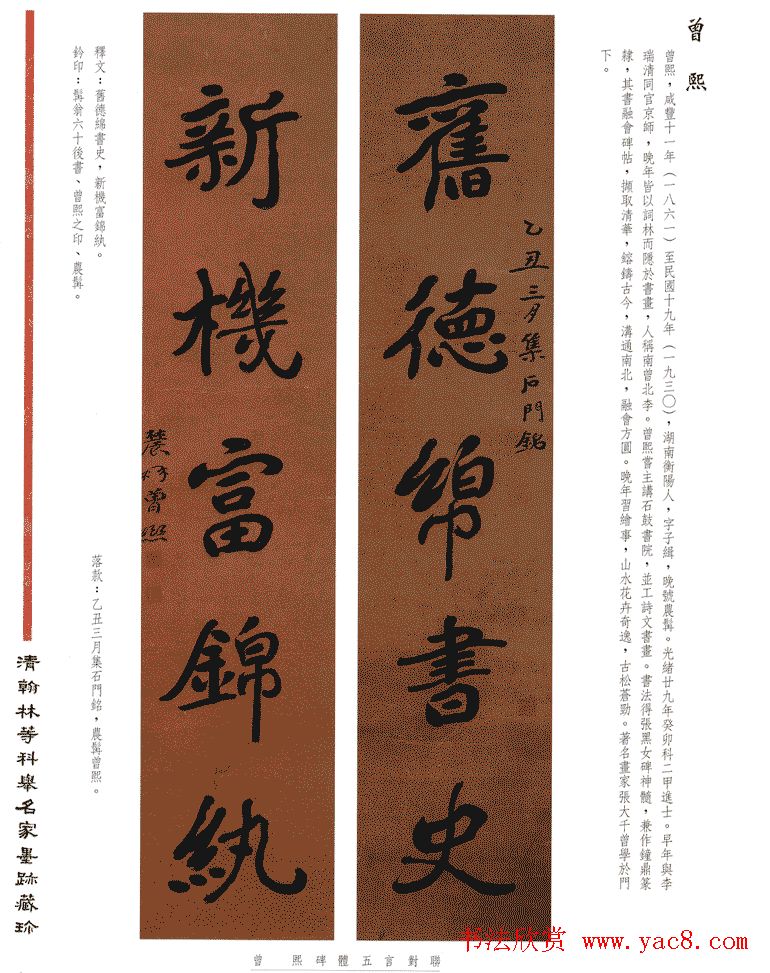 曾熙
曾熙，咸豐十一年（一八六一）至民國十九年（一九三〇），湖南衡陽人，字子緝，晚號農髯。光緒廿九年癸卯科二甲進士。早年與李
瑞清同官京師，晚年皆以詞林而隱於書畫，人稱南曾北李。曾熙嘗主講石鼓書院，並工詩文書畫。書法得張黑女碑神髓，兼作鐘鼎篆
隸，其書融會碑帖，擷取清華，鎔鑄古今，溝通南北，融會方圓。晚年習繪事，山水花卉奇逸，古松蒼勁。著名畫家張大千曾學於門
下。
舊德綿書史
乙丑三月集石門銘
新機富錦紈
農髯曾熙
釋文：舊德綿書史，新機富錦紈。
鈐印：髯翁六十後書、曾熙之印、農髯。
落款：乙丑三月集石門銘，農髯曾熙。
清翰林等科舉名家墨跡藏珍
曾熙 碑體五言對聯
书法欣赏 www.yac8.com